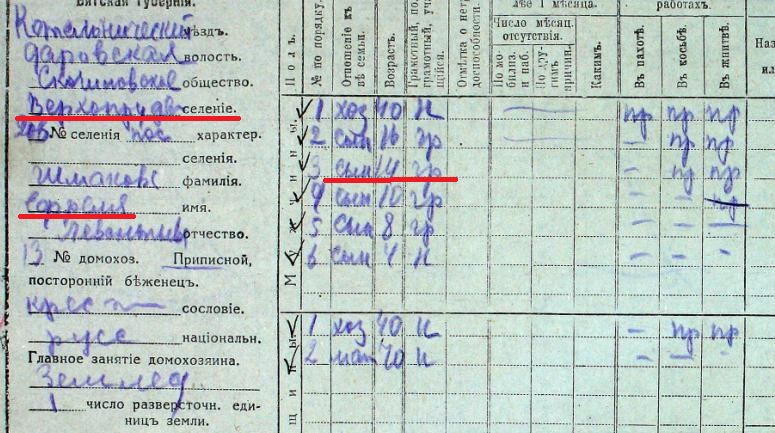 Вятская губернія.
Котельническій уѣздъ.
Даровская волость.
общество.
селеніе.
№ селенія поч характер.
селенія.
фамилія.
имя.
отчество.
13 № домохоз. Приписной,
посторонній бѣженецъ.
крест сословіе.
русс національн.
Главное занятіе домохозяина.
Землед.
1 число разверсточн. еди-
ницъ земли.
Полъ.
№ по порядку.
Отношеніе къ
къ семьи.
Возрастъ.
Грамотный,
грамотный,
щійся.
Отмѣтка о
доспособности.
1 мѣсяца.
Число мѣсяц.
отсутствія.
По мо-
билиз.
и наб.
По дру-
гимъ
причин.
Какимъ.
работахъ.
Въ пахотѣ.
Въ косьбѣ
Въ жнитвѣ.
1 хоз 40 н пр пр пр
2 сын 16 гр – пр пр
3 сын 14 гр – пр пр
4 сын 10 гр – – пр
5 сын 8 гр – – –
6 сын 4 н – – –
1 хоз 40 н – пр пр
2 мат 70 н – – –